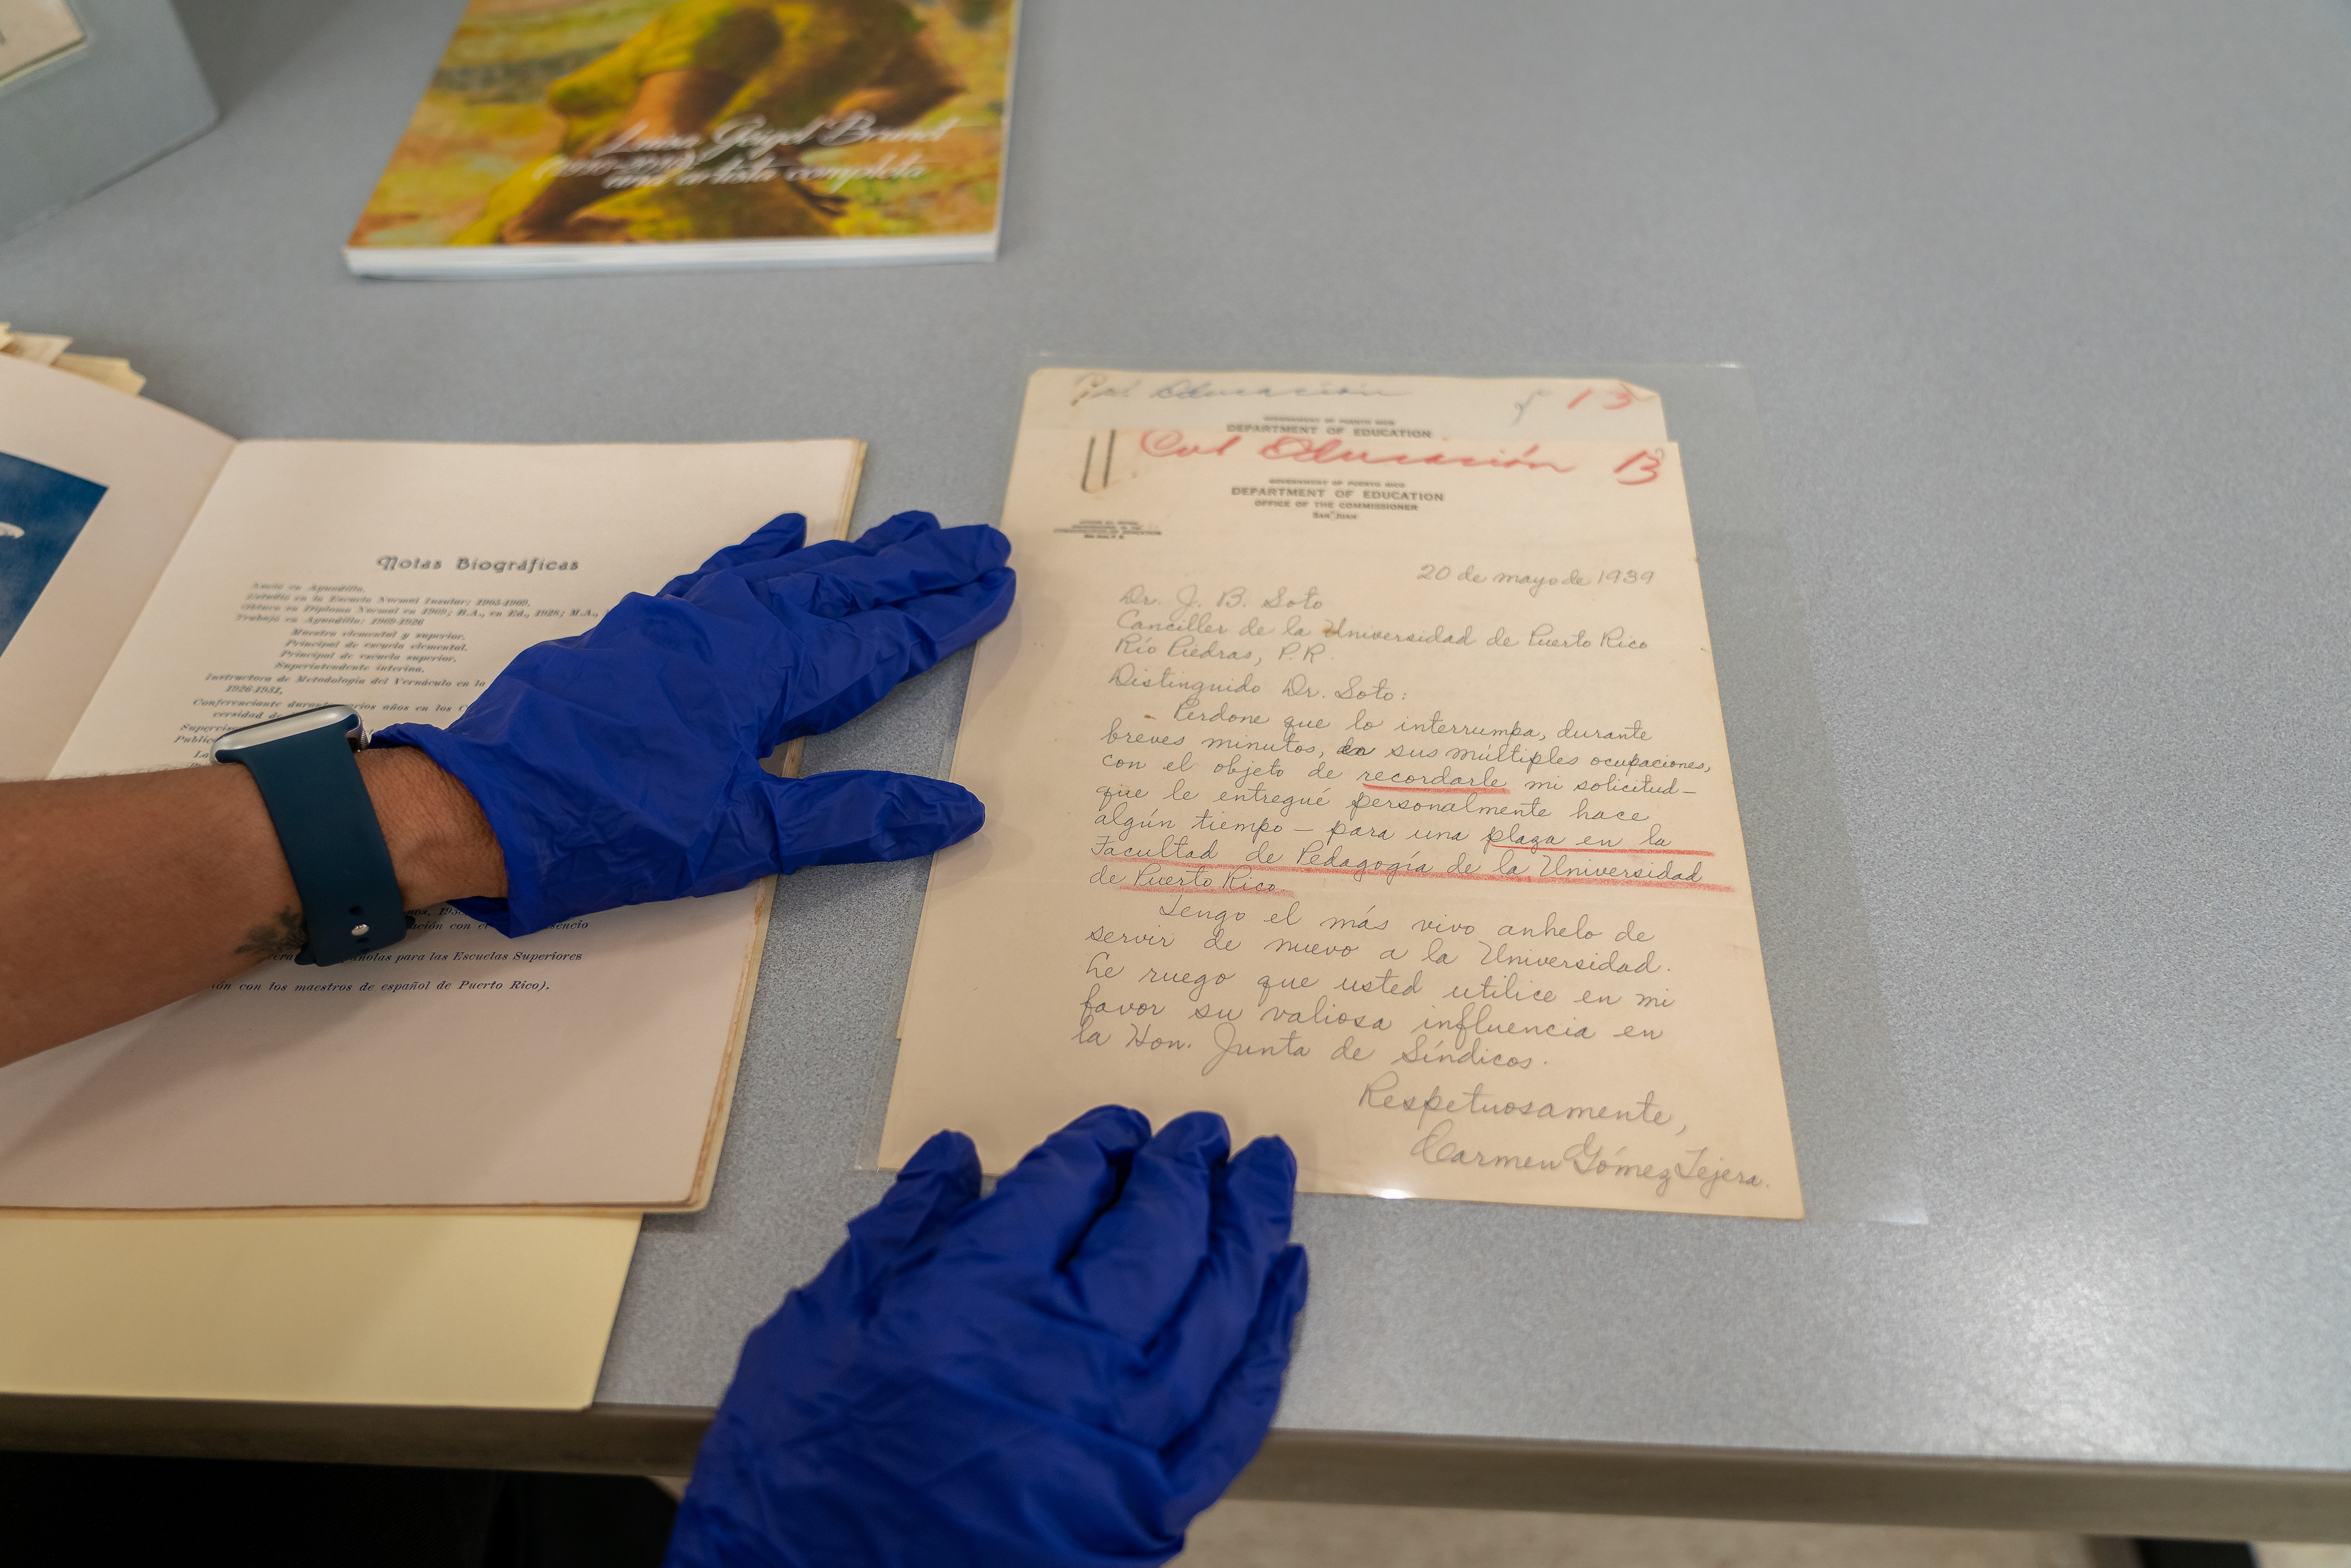 Luisa Geigel Brunet
una artista completa
Notas Biográficas
Nació en Aguadilla.
Estudió en la Escuela Normal Insular: 1905-1909.
Obtuvo su Diploma Normal en 1909; B.A., en Ed., 1928; M.A.,
Trabajó en Aguadilla: 1909-1926
Maestra elemental y superior.
Principal de escuela elemental.
Principal de escuela superior.
Superintendente interina.
Instructora de Metodología del Vernáculo en la
1926-1931.
Conferenciante durante varios años en los
versidad de
para las Escuelas Superiores
ón con los maestros de español de Puerto Rico).
Educación 13
GOVERNMENT OF PUERTO RICO
DEPARTMENT OF EDUCATION
Educación 13
GOVERNMENT OF PUERTO RICO
DEPARTMENT OF EDUCATION
OFFICE OF THE COMMISSIONER
SAN JUAN
20 de mayo de 1939
Dr. J. B. Soto
Canciller de la Universidad de Puerto Rico
Río Piedras, P.R.
Distinguido Dr. Soto:
Perdone que lo interrumpa, durante
breves minutos, en sus múltiples ocupaciones,
con el objeto de recordarle mi solicitud—
que le entregué personalmente hace
algún tiempo — para una plaza en la
Facultad de Pedagogía de la Universidad
de Puerto Rico.
Tengo el más vivo anhelo de
servir de nuevo a la Universidad.
Le ruego que usted utilice en mi
favor su valiosa influencia en
la Hon. Junta de Síndicos.
Respetuosamente,
Carmen Gómez Tejera.